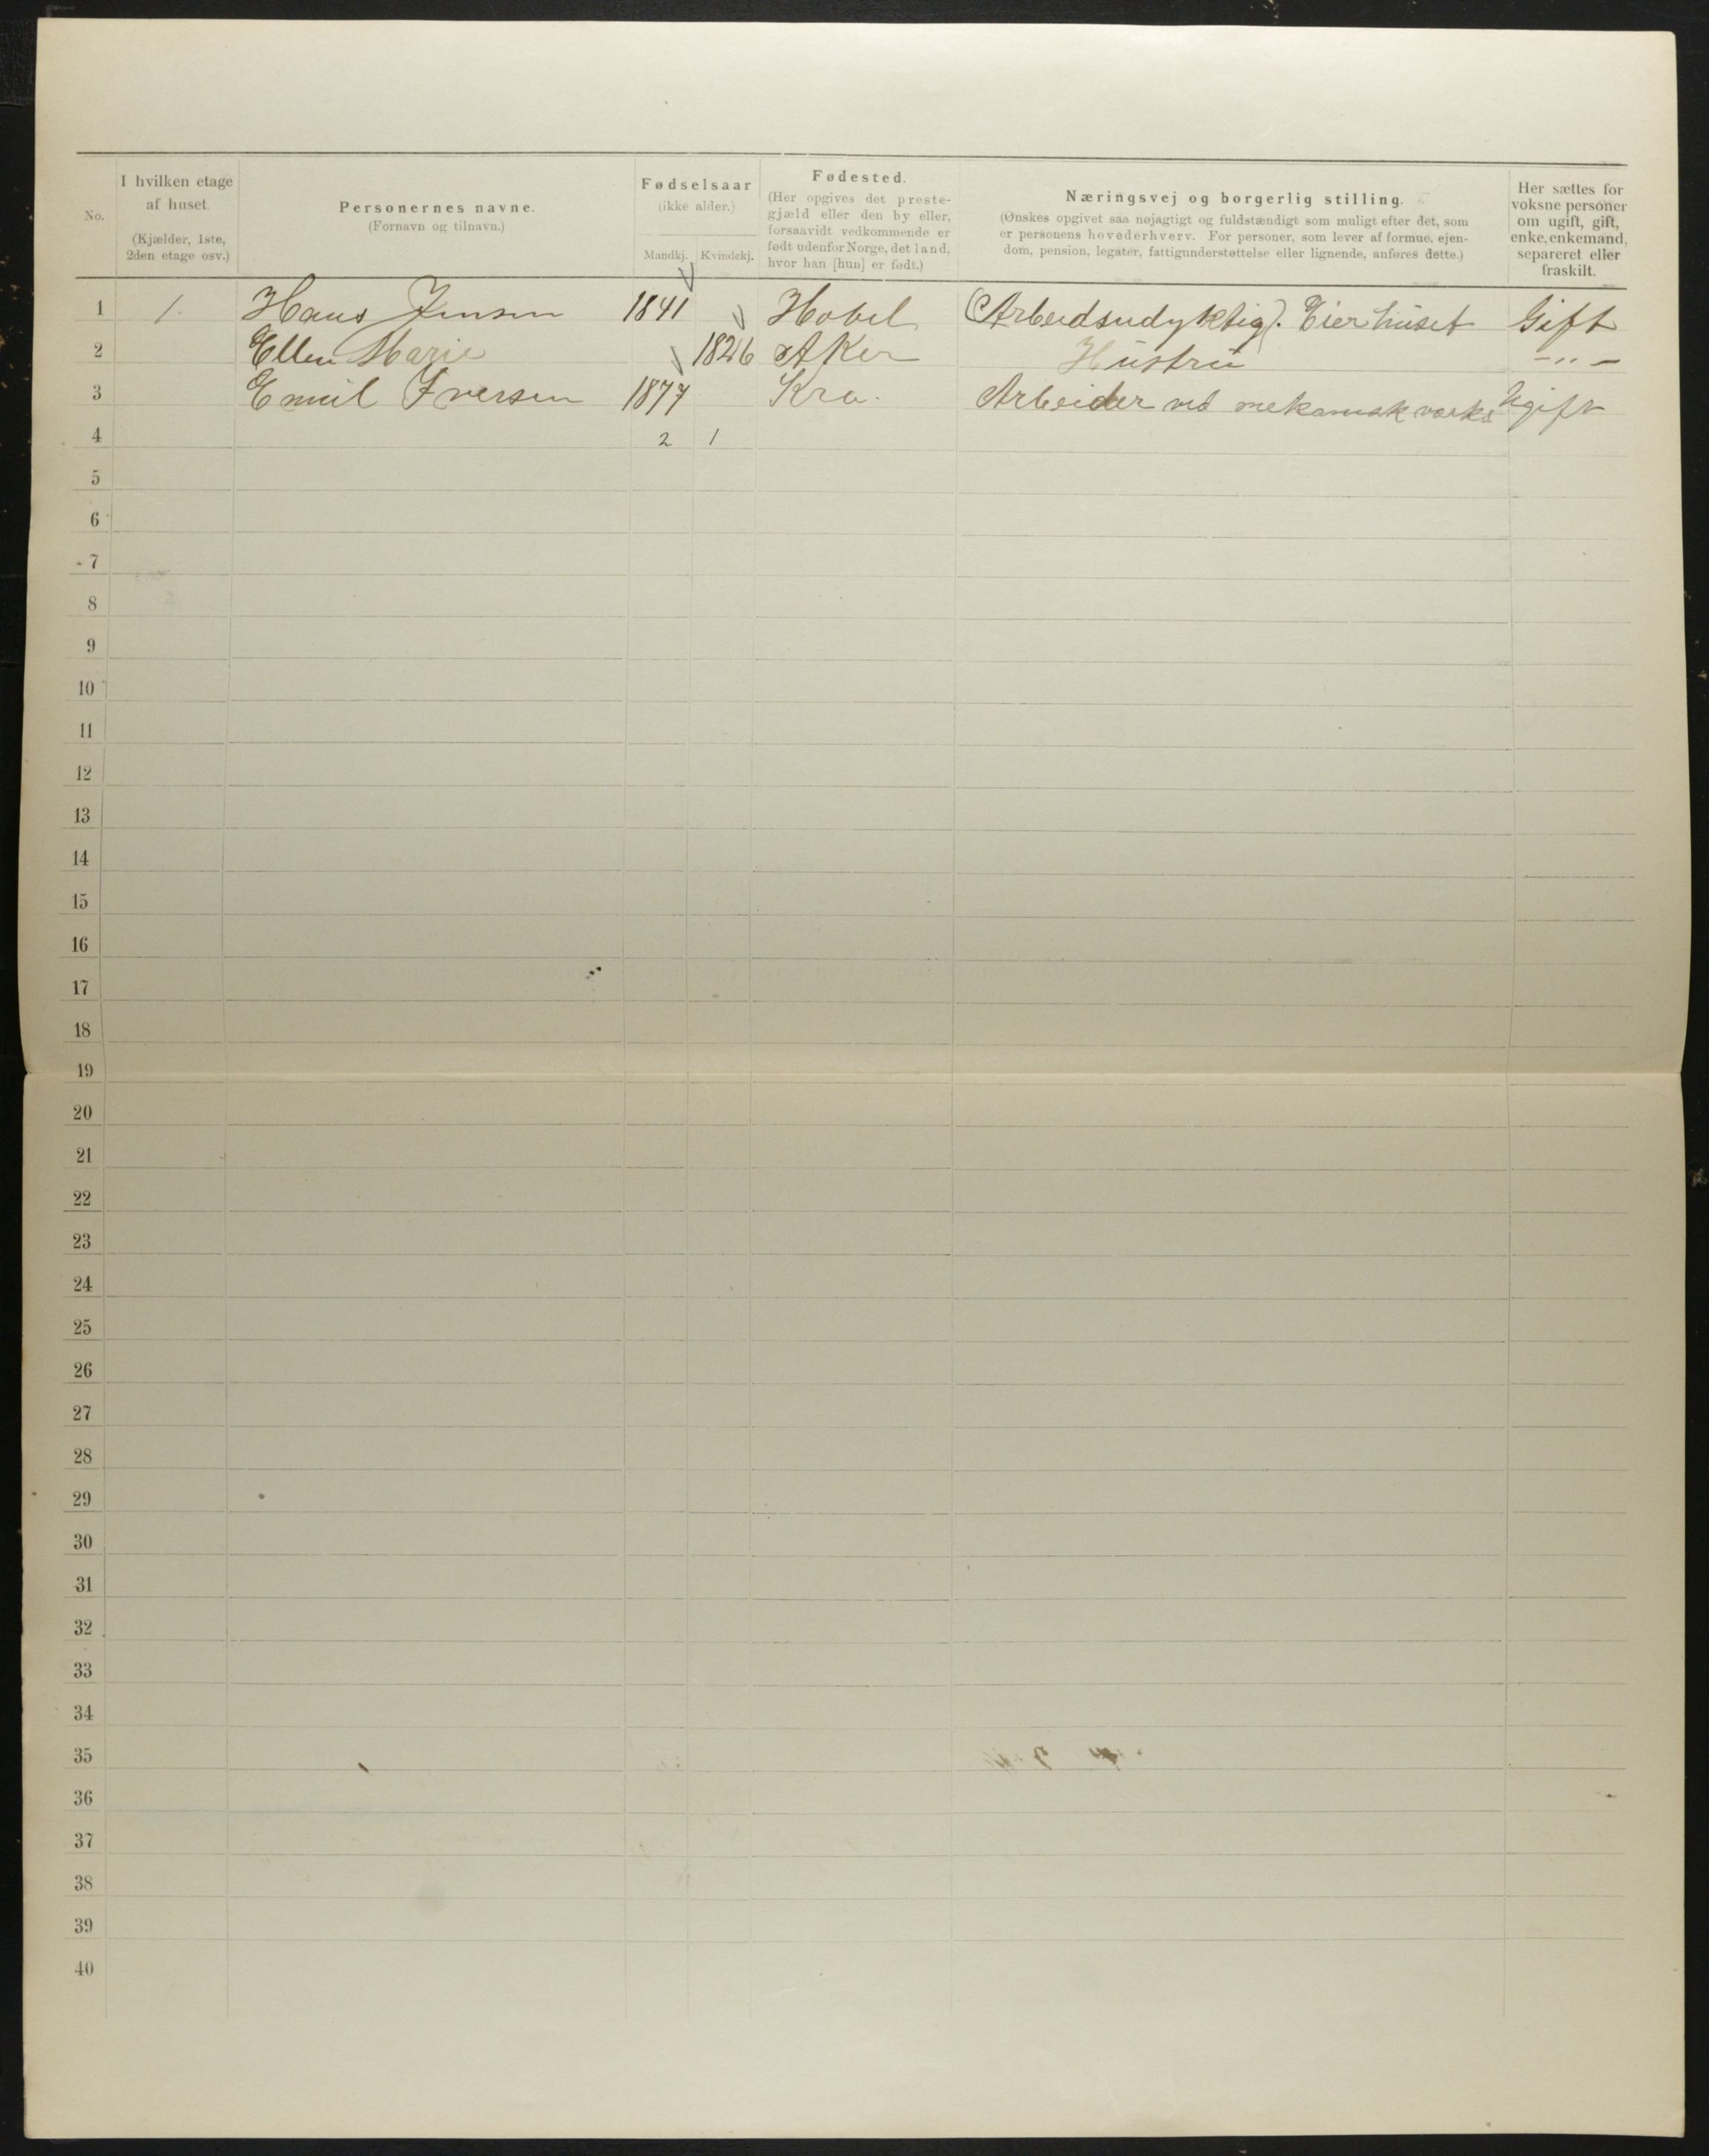 No.
I hvilken etage
af huset.
(Kjælder, 1ste,
2den etage osv.)
Personernes navne.
(Fornavn og tilnavn.)
Fødselsaar
(ikke alder.)
Mandkj. Kvindekj.
Fødested.
(Her opgives det preste-
gjæld eller den by eller,
forsaavidt vedkommende er
født udenfor Norge, det land,
hvor han [hun] er født.)
Næringsvej og borgerlig stilling.
(Ønskes opgivet saa nøjagtigt og fuldstændigt som muligt efter det, som
er personens hovederhverv. For personer, som lever af formue, ejen-
dom, pension, legater, fattigunderstøttelse eller lignende, anføres dette.)
Her sættes for
voksne personer
om ugift, gift,
enke, enkemand,
separeret eller
fraskilt.
1 1. Hans Jensen 1841 Hobel (Arbeidsudyktig). Eier huset Gift
2 Ellen Marie 1826 Aker Hustru -"-
3 Emil Iversen 1877 Kra. Arbeider ved mekanisk værks Ugift
4 2 1
5
6
7
8
9
10
11
12
13
14
15
16
17
18
19
20
21
22
23
24
25
26
27
28
29
30
31
32
33
34
35
36
37
38
39
40